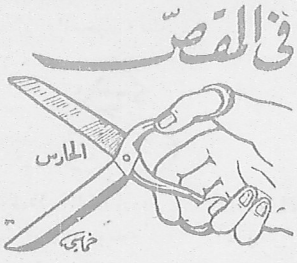 في المقصّ
الحارس